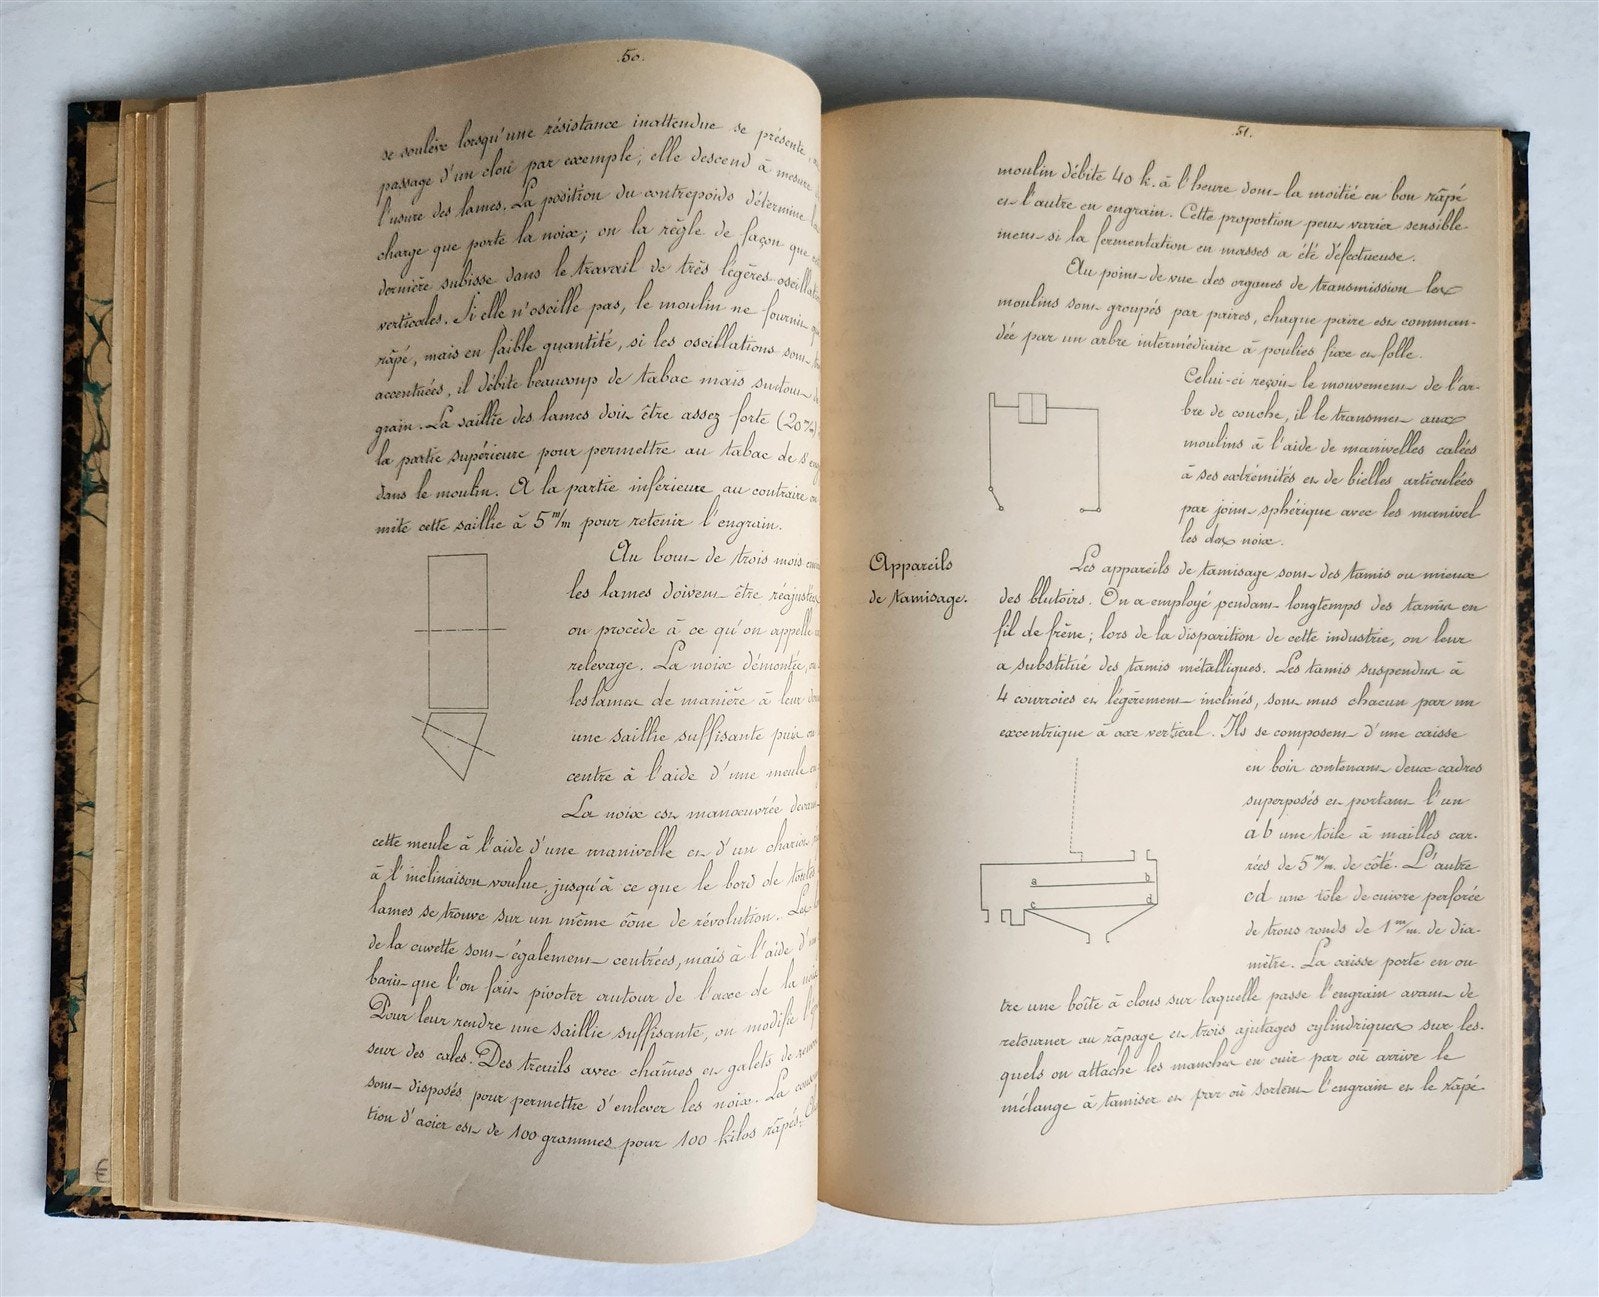 50.
se soulève lorsqu'une résistance inattendue se présente,
passage d'un clou par exemple; elle descend à mesure
l'usure des lames. La position du contrepoids détermine la
charge que porte la noix; on la règle de façon que
dernière subisse dans le travail de très légères oscillat
verticales. Si elle n'oscille pas, le moulin ne fournit
râpé, mais en faible quantité, si les oscillations sont
accentuées, il débite beaucoup de tabac mais surtout
grain. La saillie des lames doit être assez forte (20 m/m)
la partie supérieure pour permettre au tabac de s'eng
dans le moulin. A la partie inférieure au contraire on
mite cette saillie à 5 m/m pour retenir l'engrain.
Au bout de trois mois
les lames doivent être réajustées
on procède à ce qu'on appelle
relevage. La noix démontée, on
les lames de manière à leur
une saillie suffisante puis on
centre à l'aide d'une meule
La noix est manœuvrée devant
cette meule à l'aide d'une manivelle et d'un chariot
à l'inclinaison voulue, jusqu'à ce que le bord de toutes
lames se trouve sur un même cône de révolution. Les
de la cuvette sont également centrées, mais à l'aide d'un
burin que l'on fait pivoter autour de l'axe de la noix
Pour leur rendre une saillie suffisante, on modifie l'ép
seur des cales. Des treuils avec chaînes et galets de
sont disposés pour permettre d'enlever les noix. La conso
tion d'acier est de 100 grammes pour 100 kilos râpés.
51.
moulin débite 40 k. à l'heure dont la moitié en bon râpé
et l'autre en engrain. Cette proportion peut varier sensible-
ment si la fermentation en masses a été défectueuse.
Au point de vue des organes de transmission les
moulins sont groupés par paires, chaque paire est comman-
dée par un arbre intermédiaire à poulies, fixe et folle.
Celui-ci reçoit le mouvement de l'ar-
bre de couche, il le transmet aux
moulins à l'aide de manivelles calées
à ses extrémités et de bielles articulées
par joint sphérique avec les manivel
les des noix.
Appareils
de tamisage.
Les appareils de tamisage sont des tamis ou mieux
des blutoirs. On a employé pendant longtemps des tamis en
fil de frêne; lors de la disparition de cette industrie, on leur
a substitué des tamis métalliques. Les tamis suspendus à
4 courroies et légèrement inclinés, sont mus chacun par un
excentrique à axe vertical. Ils se composent d'une caisse
en bois contenant deux cadres
superposés et portant l'un
ab une toile à mailles car-
rées de 5 m/m. de côté. L'autre
cd une tôle de cuivre perforée
de trous ronds de 1 m/m. de dia-
mètre. La caisse porte en ou
a
b
c
d
tre une boîte à clous sur laquelle passe l'engrain avant de
retourner au râpage et trois ajutages cylindriques sur les-
quels on attache les manches en cuir par où arrive le
mélange à tamiser et par où sortent l'engrain et le râpé
€